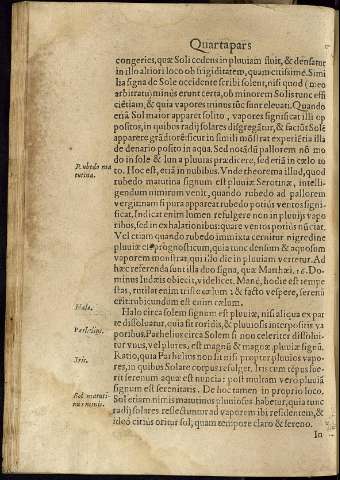 Quarta pars
congeries, quæ Soli cedens in pluuiam fluit, & densatur
in illo altiori loco ob frigiditatem, quam citissimè. Simi
lia signa de Sole occidente scribi solent, nisi quod (meo
arbitratu) minus erunt certa, ob minorem Solis tunc effi
ciẽtiam, & quia vapores minus tũc sunt eleuati. Quando
etiã Sol maior apparet solito, vapores significat illi op
positos, in quibus radij solares disgregãtur, & faciũt Solẽ
apparere grãdiorẽ: sicut in simili mõstrat experiẽtia illa
de denario posito in aqua. Sed notãdũ pallorem nõ mo
do in sole & luna pluuias prædicere, sed etiã in cælo to
to. Hoc est, etiã in nubibus. Vnde theorema illud, quod
rubedo matutina signum est pluuiæ Serotinæ, intelli-
gendum nimirum venit, quando rubedo ad pallorem
vergit: nam si pura appareat rubedo potiùs ventos signi-
ficat. Indicat enim lumen refulgere non in pluuijs vapo
ribus, sed in exhalationibus: quare ventos potiùs nũciat.
Vel etiam quando rubedo immixta cernitur nigredine
pluuiæ est prognosticum, quia tunc densum & aquosum
vaporem monstrat, qui illo die in pluuiam vertetur. Ad
hæc referenda sunt illa duo signa, quæ Matthæi. 16. Do-
minus Iudæis obiecit, videlicet. Manè, hodie est tempe-
stas, rutilat enim triste cælum: & facto vespere, serenũ
erit: rubicundum est enim cælum.
Halo circa solem signum est pluuiæ, nisi aliqua ex par
te dissoluatur, quia sit roridis, & pluuiosis interpositis va
poribus. Parhelius circa Solem si non celeriter dissolui-
tur vnus, vel plures, est magnũ & magnæ pluuiæ signũ.
Ratio, quia Parhelius non fit nisi propter pluuios vapo-
res, in quibus Solare corpus refulget. Iris cum tẽpus fue-
rit serenum aquæ est nuncia: post multam vero pluuiã
signum est serenitatis. De hoc tamen in proprio loco.
Sol etiam nimis matutinus pluuiosus habetur, quia tunc
radij solares reflectuntur ad vaporem ibi residentem, &
ideò citiùs oritur sol, quam tempore claro & sereno.
In
Rubedo ma
tutina.
Halo.
Parhelius.
Iris.
Sol matuti-
nus nimis.